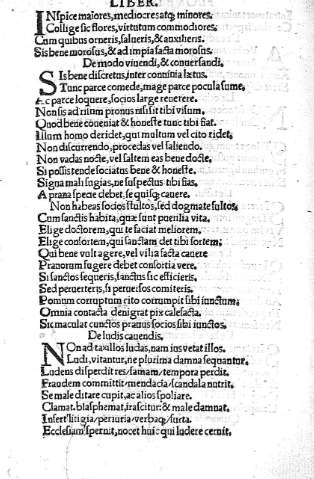 LIBER.
INspice maiores, mediocresatq; minores.
Collige sic flores, virtutum commodiores.
Cum quibus orneris, salueris, & auxilieris.
Sis bene morosus, & ad impia facta morosus.
De modo viuendi, & conuersandi.
SIs bene discretus, inter conuiuia lætus.
Tunc parce comede, mage parce pocula sume,
Ac parce loquere, socios large reuerere.
Non sis ad risum pronus nisi sit tibi visum,
Quod bene conueniat & honeste tunc tibi fiat.
Illum homo deridet, qui multum vel cito ridet,
Non discurrendo, procedas vel saliendo.
Non vadas nocte, vel saltem eas bene docte,
Si possis tende sociatus bene & honeste.
Signa mali fugias, ne suspectus tibi fias.
A praua specie debet, se quisq; cauere.
Non habeas socios stultos, sed dogmate fultos.
Cum sanctis habita, quæ sunt puerilia vita,
Elige doctorem, qui te faciat meliorem.
Elige consortem, qui sanctam det tibi sortem;
Qui bene vult agere, vel vilia facta cauere
Prauorum fugere debet consortia vere.
Si sanctos sequeris, sanctus sic efficieris,
Sed peruerteris, si peruersos comiteris.
Pomum corruptum cito corrumpit sibi iunctum;
Omnia contacta denigrat pix calefacta.
Sic maculat cunctos prauus socios sibi iunctos.
De ludis cauendis.
NOn ad taxillos ludas, nam ius vetat illos.
Ludi, vitantur, ne plurima damna sequantur.
Ludens disperdit res/famam/tempora perdit.
Fraudem committit/mendacia/scandala nutrit.
Se male ditare cupit, ac alios spoliare.
Clamat, blasphemat, irascitur: & male damnat.
Insert/litigia/periuria/verbaq;/furta.
Ecclesiam spernit, nocet huic qui ludere cernit.